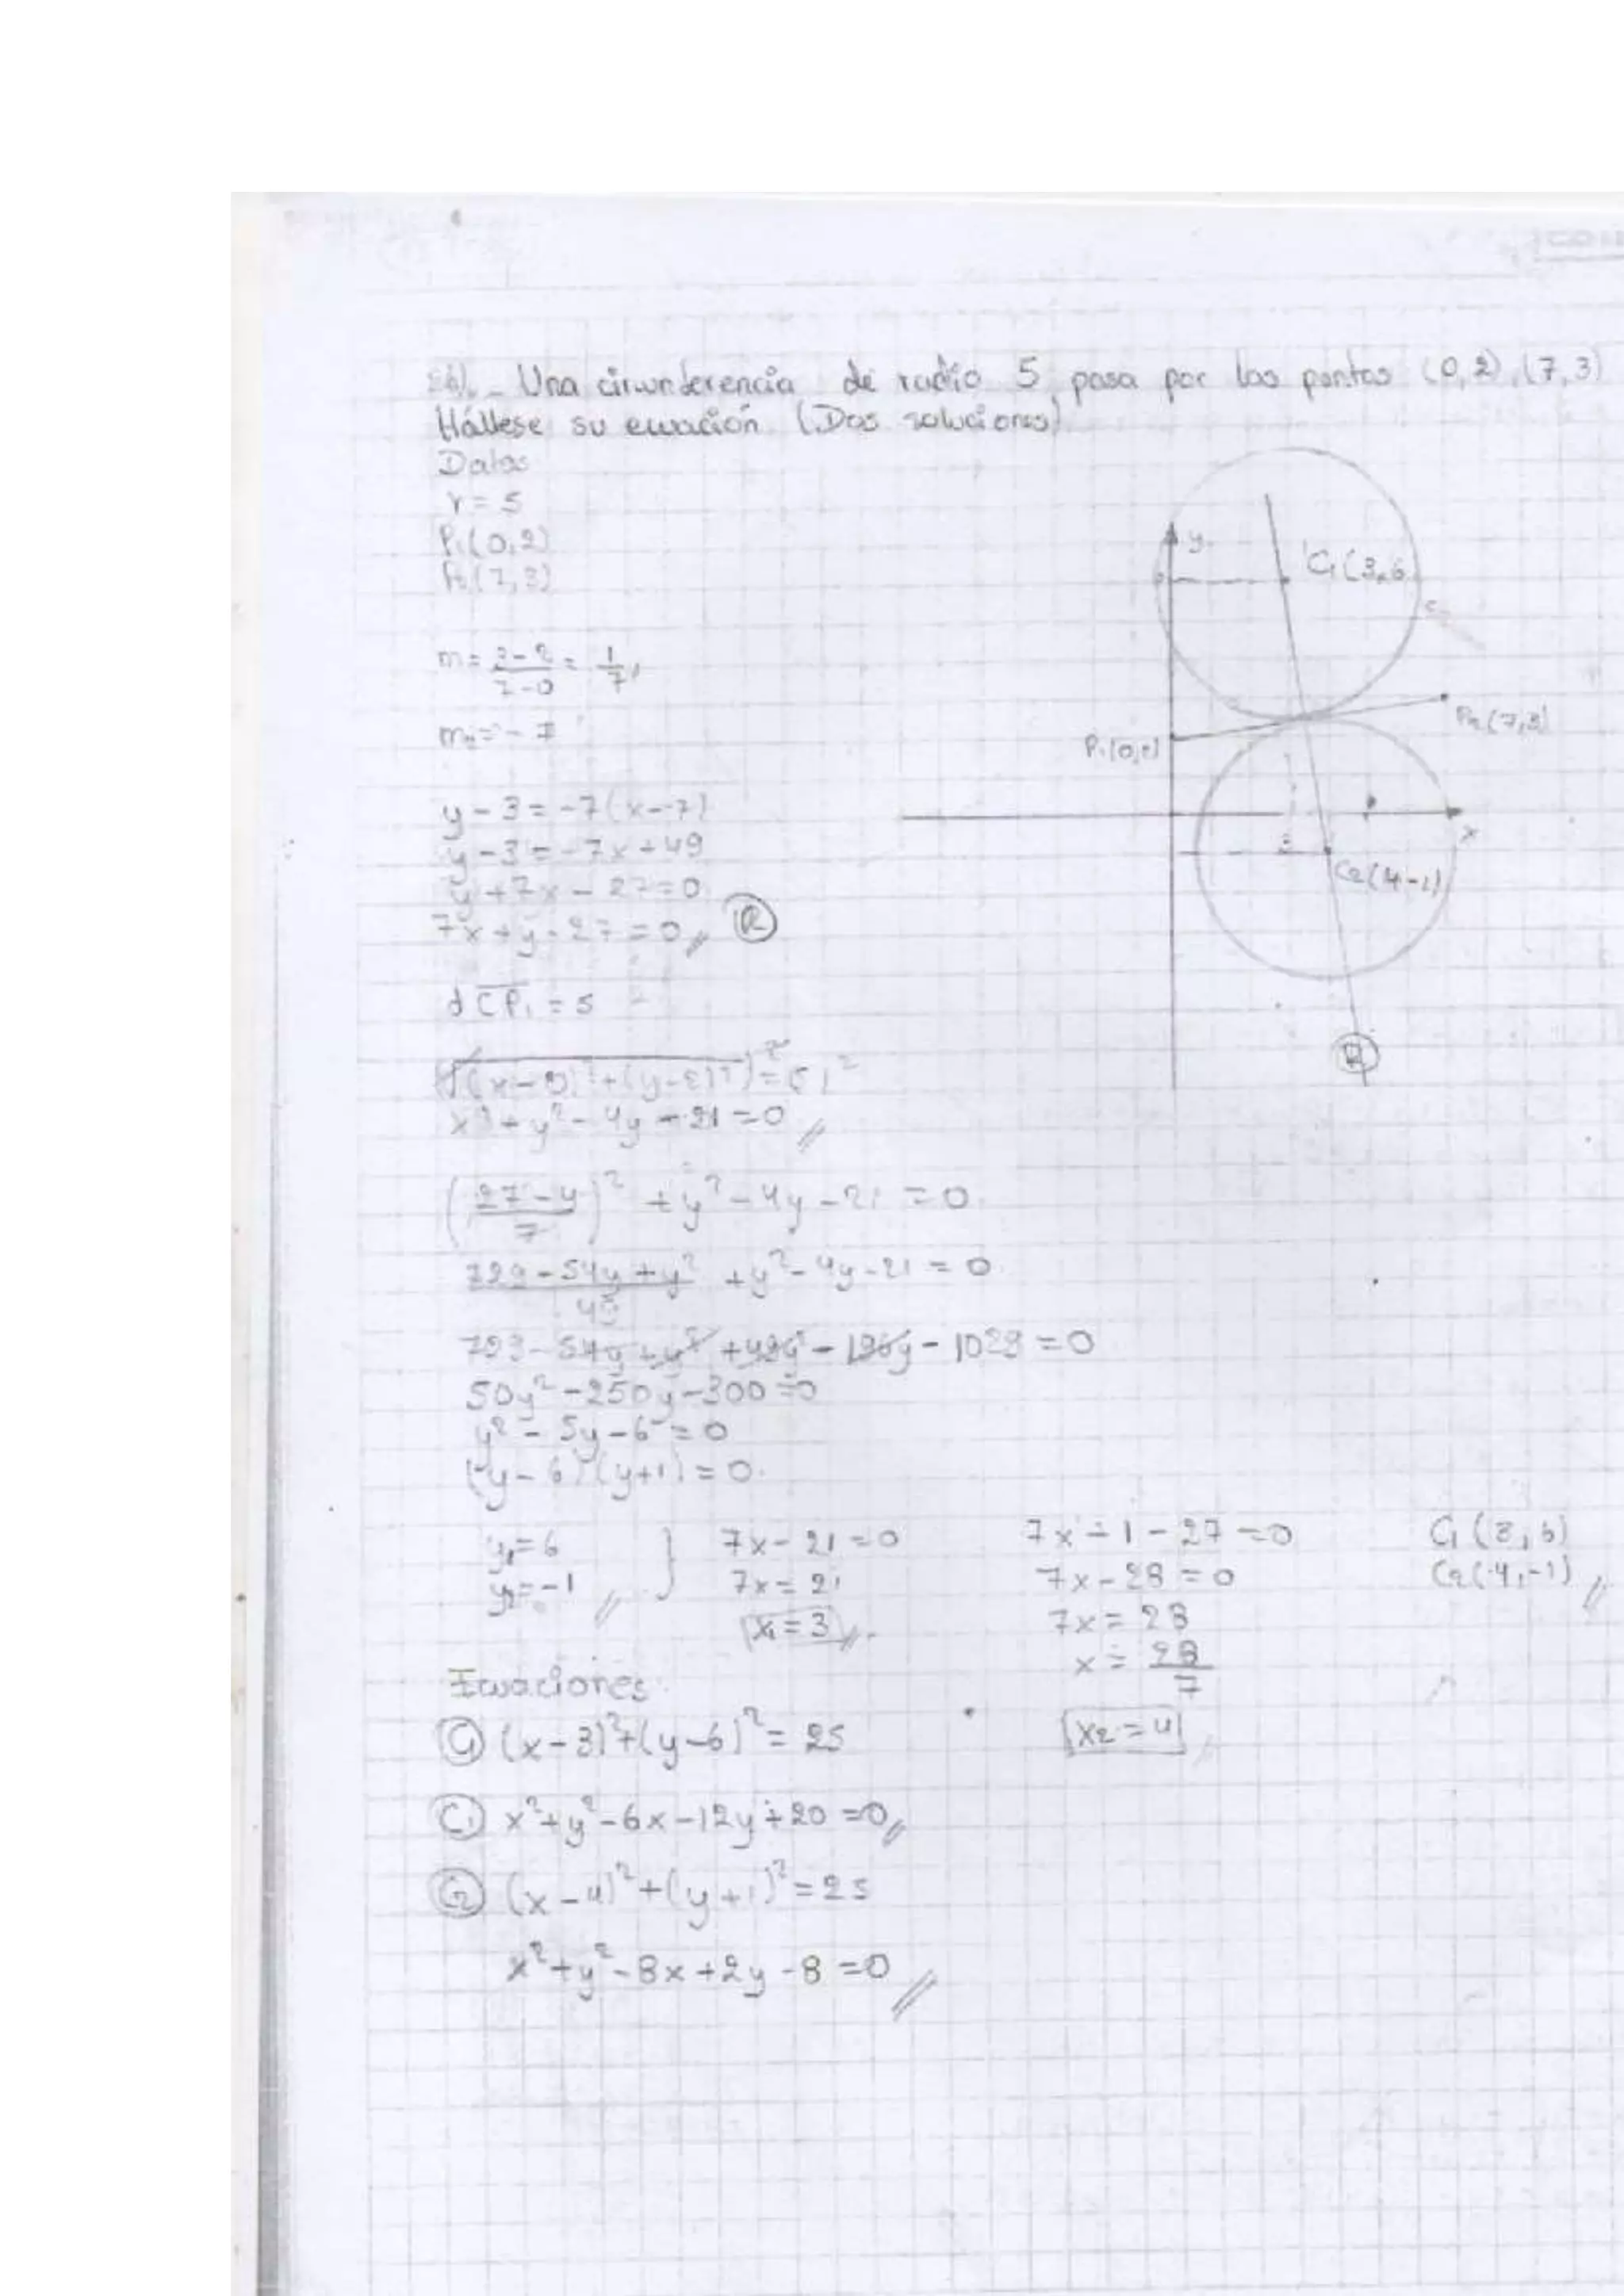 Una circunferencia de radio 5, pasa por los puntos (0,2), (7,3)
Hállese su ecuación (Dos soluciones)
Datos
r = 5
P₁(0,2)
P₂(7,3)
m = 3-2/7-0 = 1/7
m₂ = -7
y - 3 = -7(x-7)
y - 3 = -7x + 49
y + 7x - 27 = 0
7x + y - 27 = 0 // Ⓡ
d CP₁ = 5
x² + y² - 4y - 21 = 0 //
(27 - y / 7)² + y² - 4y - 21 = 0
729 - 54y + y² / 49 + y² - 4y - 21 = 0
729 - 54y + y² + 49y² - 196y - 1029 = 0
50y² - 250y - 300 = 0
y² - 5y - 6 = 0
(y - 6)(y + 1) = 0
y₁ = 6 } 7x - 21 = 0 7x - 1 - 27 = 0 C₁(3,6)
y₂ = -1 // 7x = 21 7x - 28 = 0 C₂(4,-1) //
x₁ = 3 // 7x = 28
x = 28/7
x₂ = 4 //
Ecuaciones
C₁ (x - 3)² + (y - 6)² = 25
C₁ x² + y² - 6x - 12y + 20 = 0 //
C₂ (x - 4)² + (y + 1)² = 25
x² + y² - 8x + 2y - 8 = 0 //
y
C₁(3,6
P₂(7,3)
P₁(0,2)
x
C₂(4-1)
Ⓡ